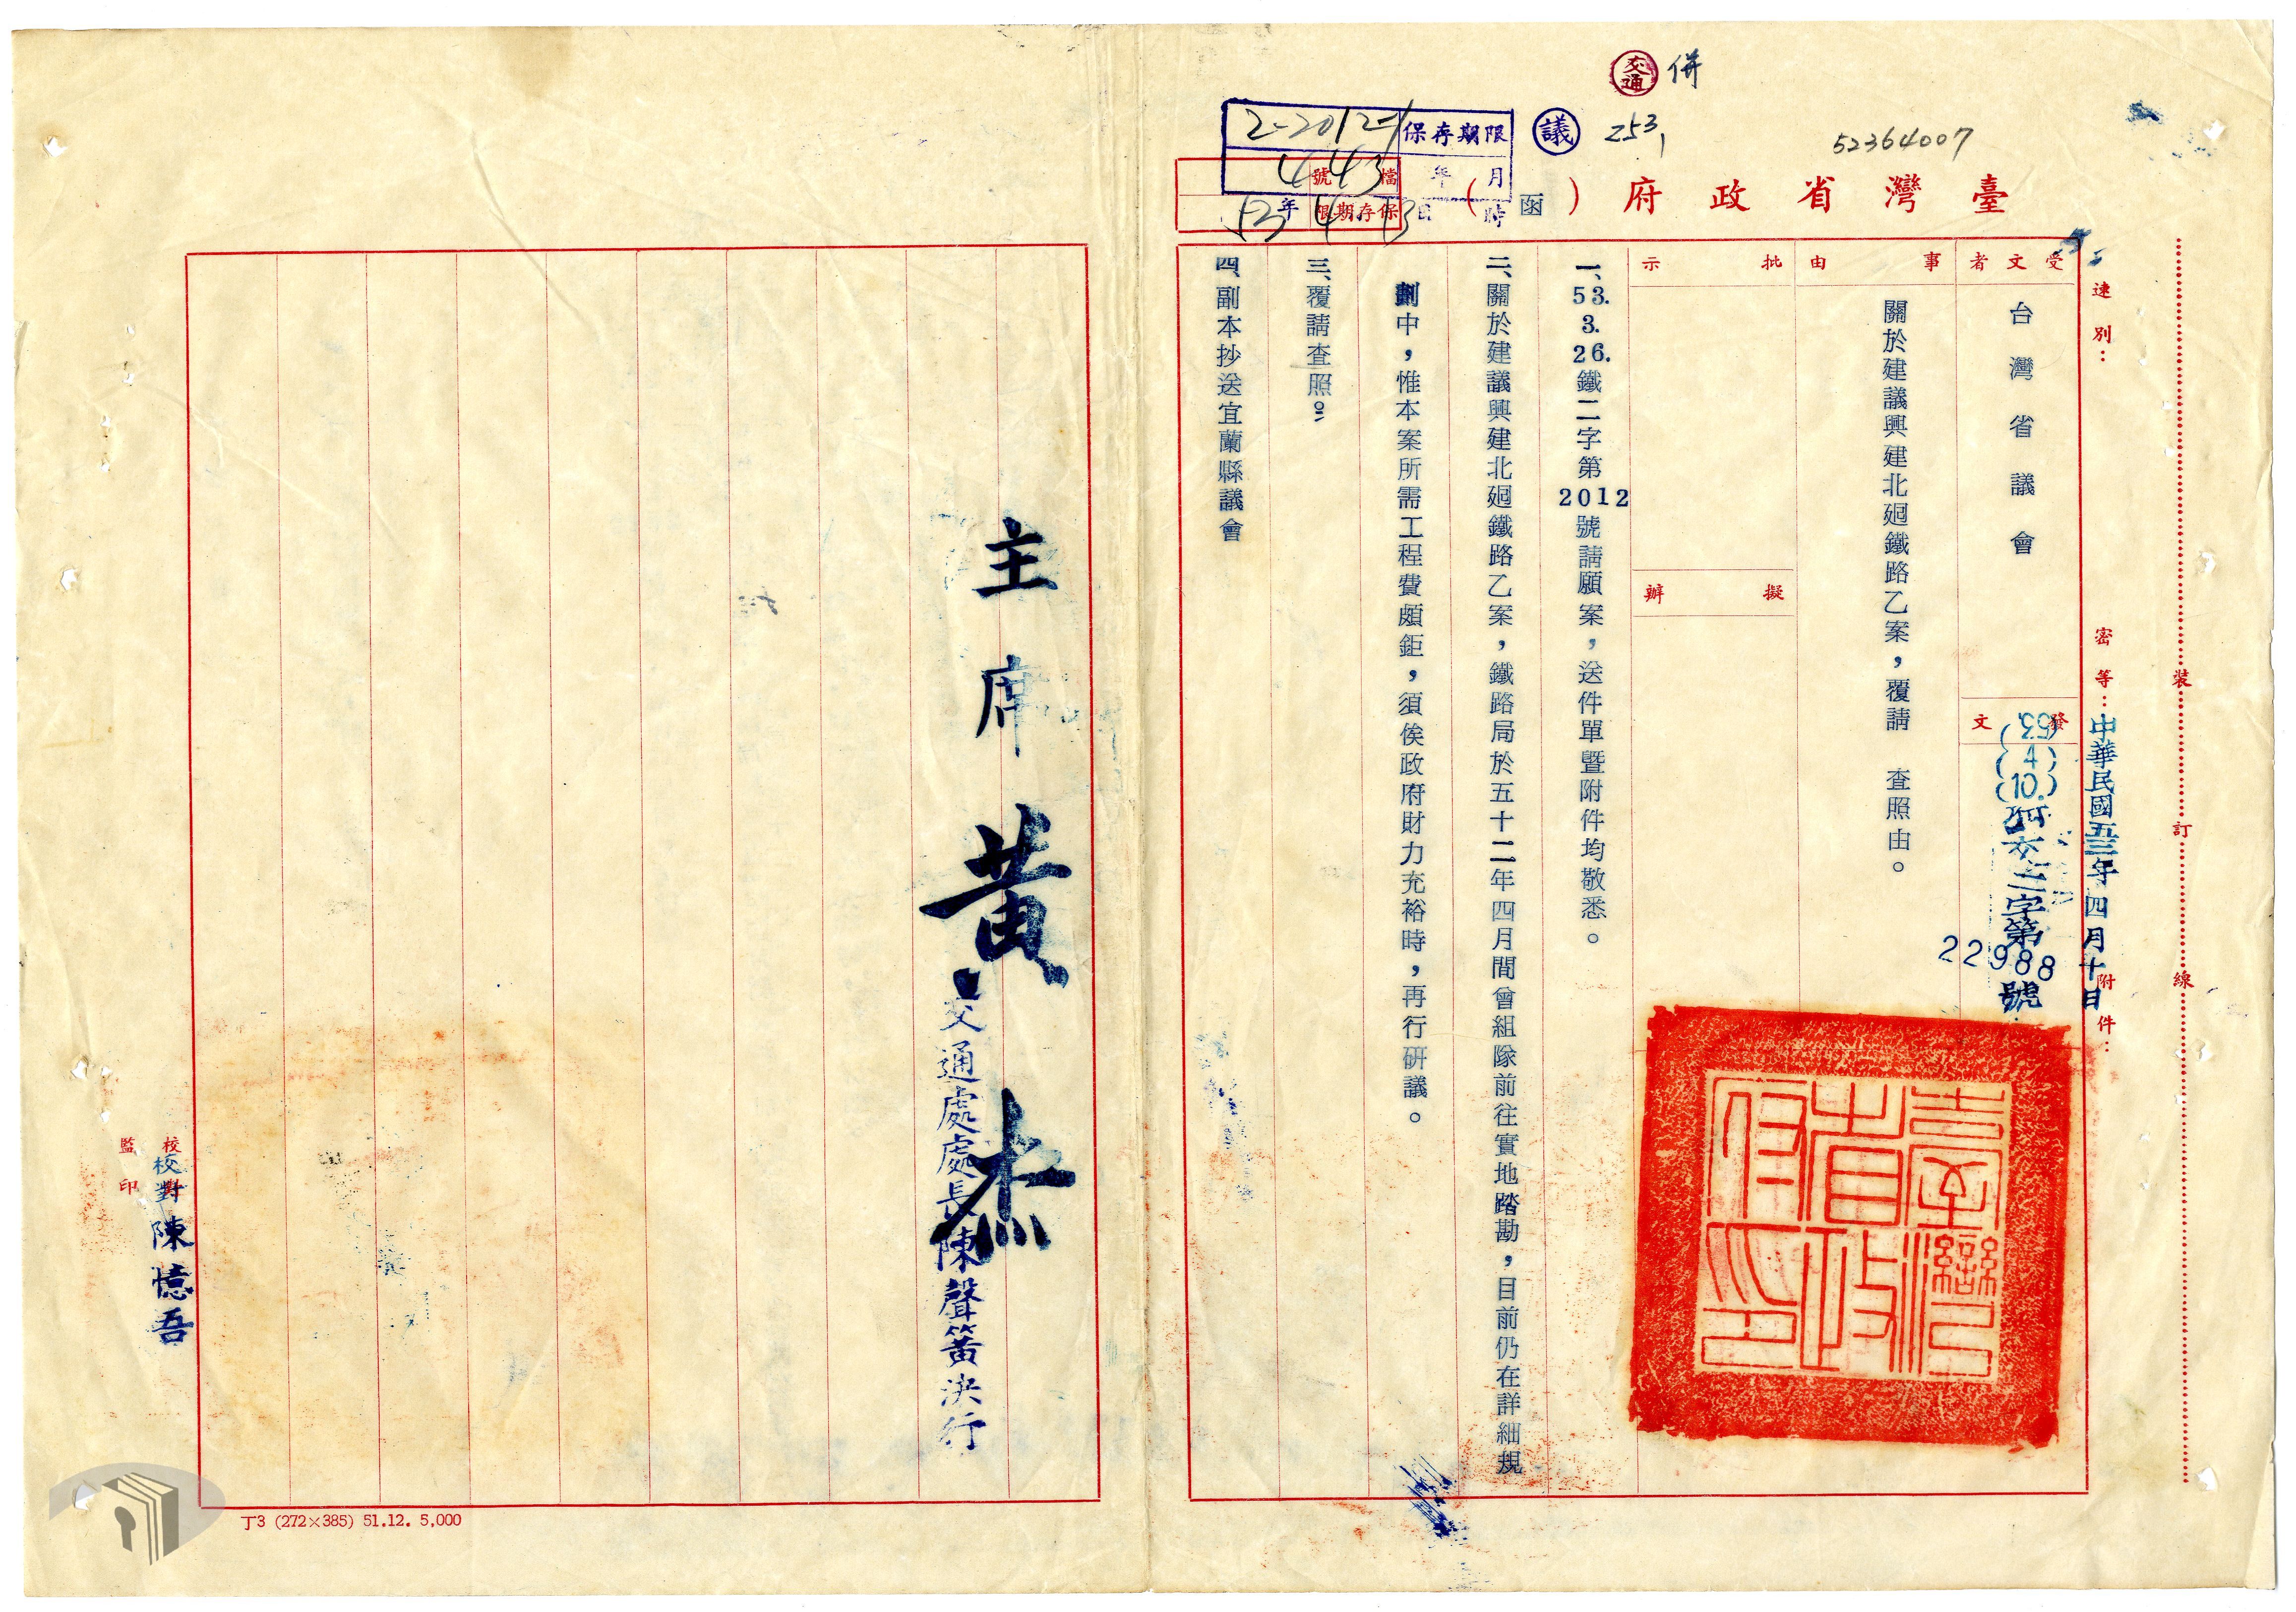 交通
併
議
253,
52364007
2-2012-1
443
53 4 13
保存期限
年 月
日 時
檔 號
保存期限 年
臺灣省政府（函）
裝 訂 線
速別：
密等：
附件：
中華民國五三年四月十日
受文者
台灣省議會
發文
(53)
(4)
(10.)
交二字第
22988
號
事由
關於建議興建北廻鐵路乙案，覆請　查照由。
批示
擬辦
一、53.3.26.鐵二字第2012號請願案，送件單暨附件均敬悉。
二、關於建議興建北廻鐵路乙案，鐵路局於五十二年四月間曾組隊前往實地踏勘，目前仍在詳細規
劃中，惟本案所需工程費頗鉅，須俟政府財力充裕時，再行研議。
三、覆請查照。
四、副本抄送宜蘭縣議會
臺灣省政府印
主席 黃杰
交通處處長陳聲簧決行
校對
校對 陳憶吾
監印
丁3 (272×385) 51.12. 5,000